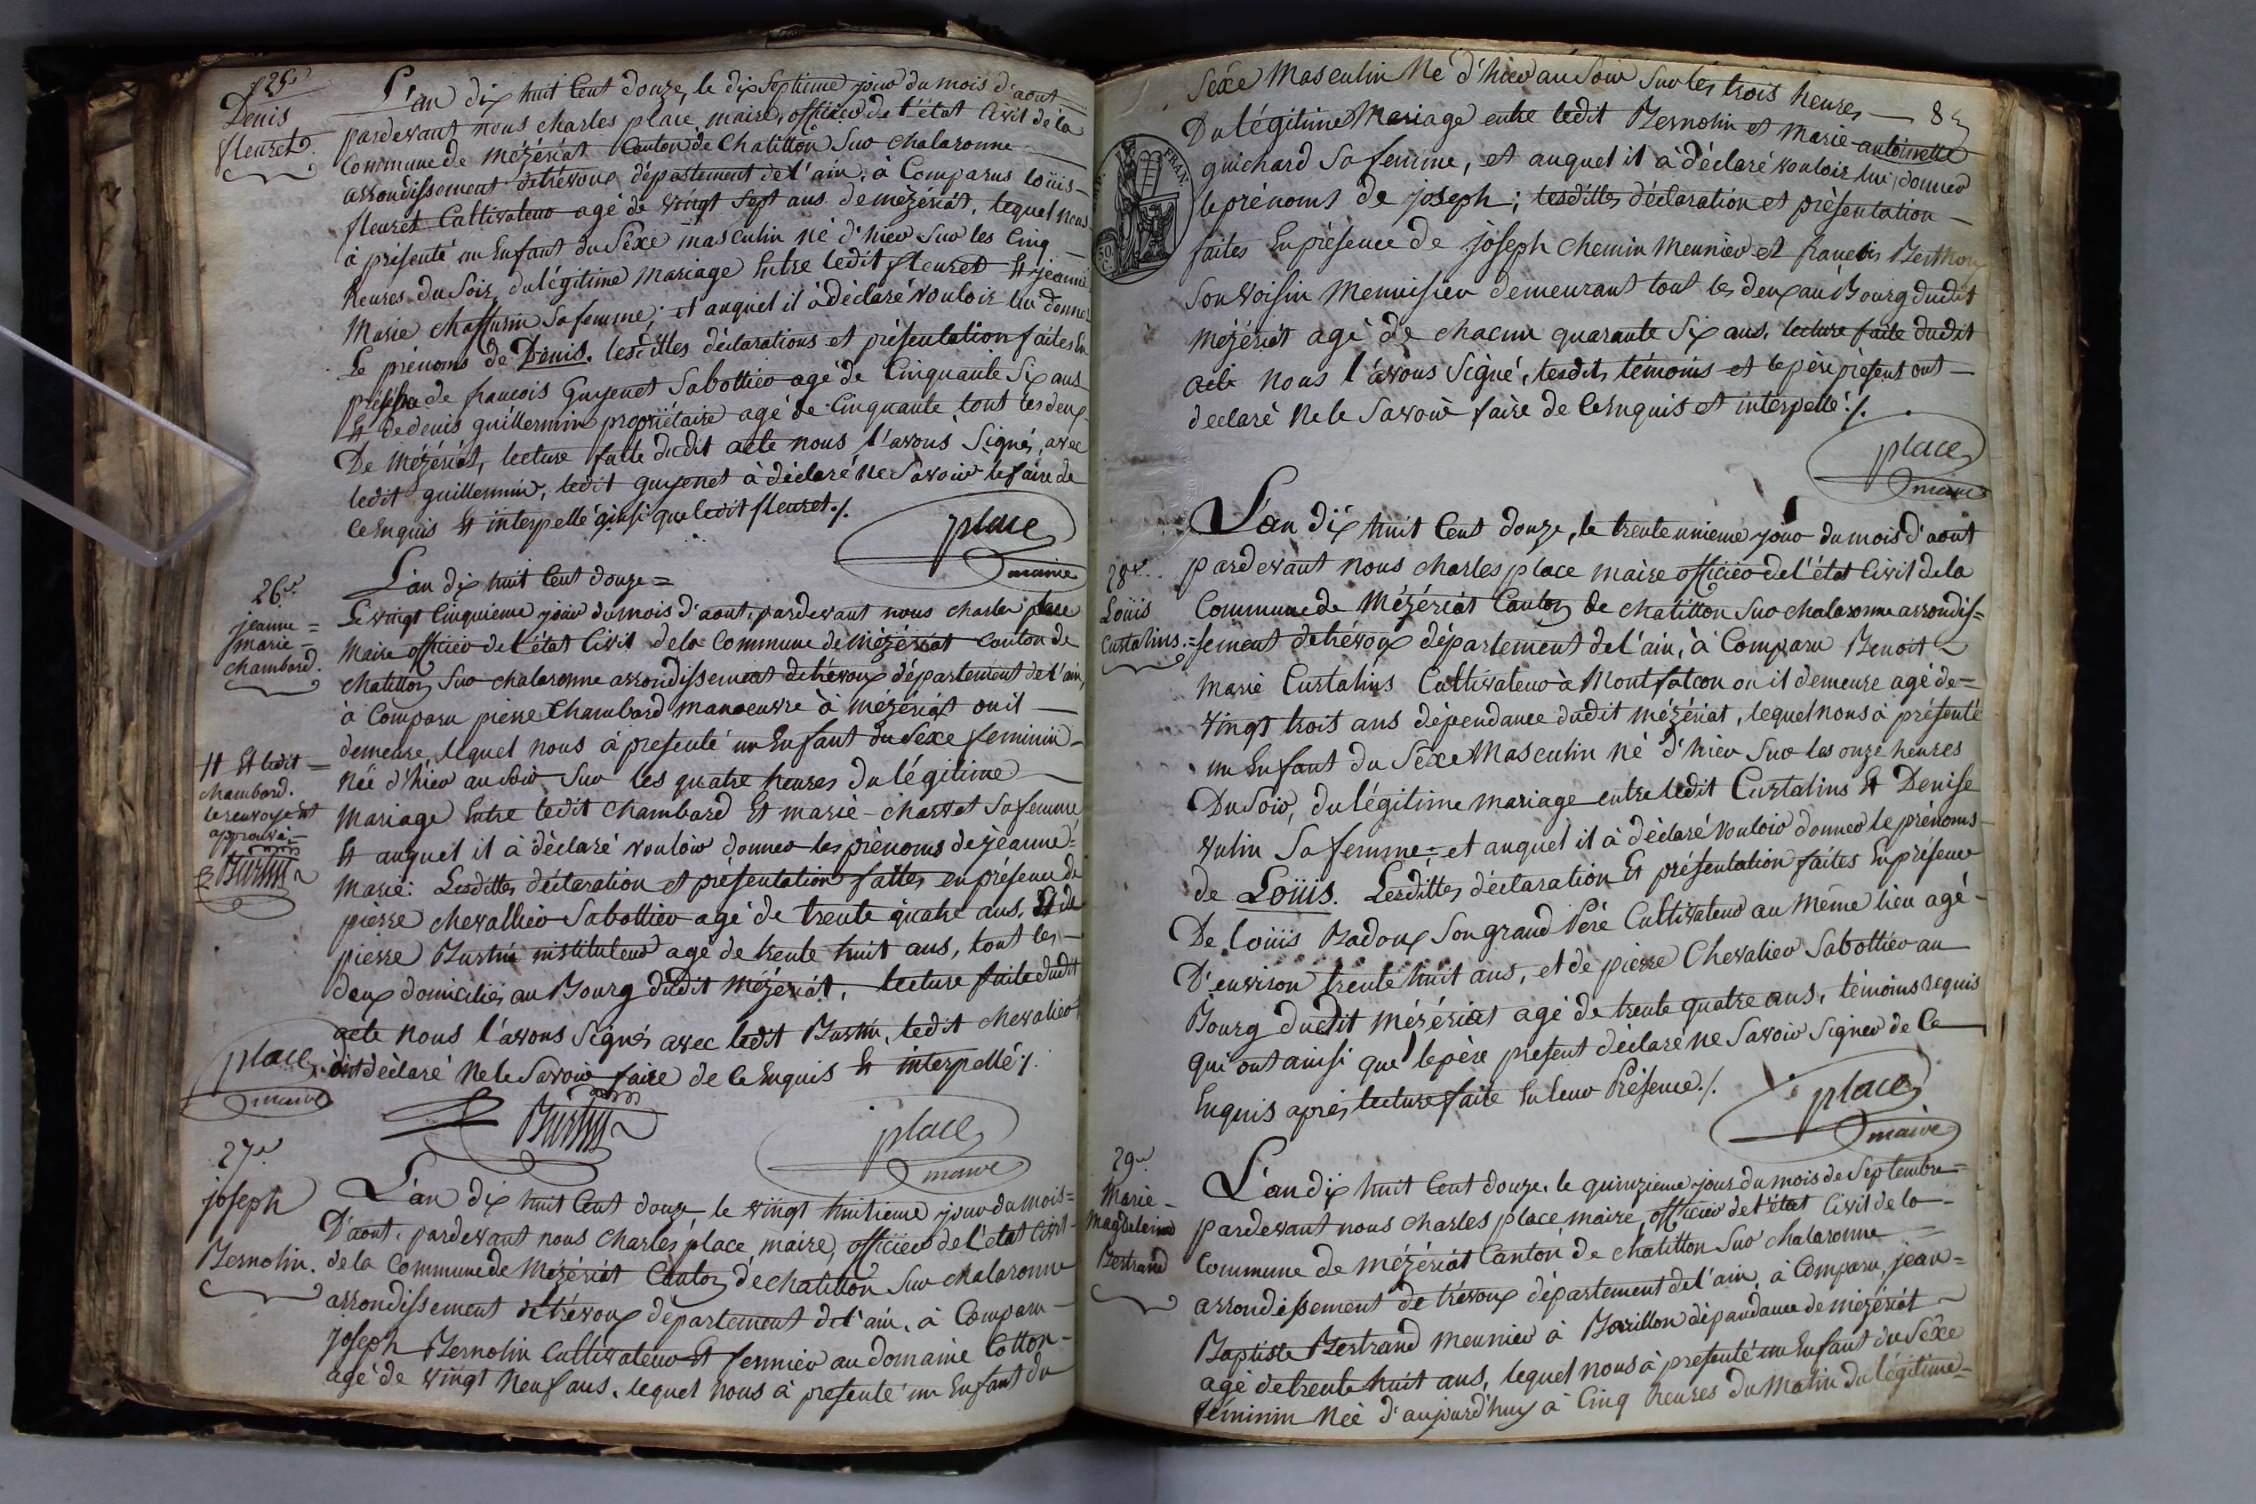 25e
Denis
fleuret.
L'an dix huit Cent douze, le dix Septieme jour du mois d'aout
pardevant nous charles place, maire, officier de l'état Civil de la
Commune de Mézériat Canton de Chatillon Sur chalaronne
arrondissement de trévoux département de l'ain, à Comparus loüis
fleuret Cultivateur agé de vingt Sept ans de mézériat, lequel nous
à présenté un Enfant du Séxe masculin né d'hier Sur les Cinq
heures du Soir, du légitime mariage Entre ledit fleuret Et jeanne
Marie chaffurin Sa femme et auquel il à déclaré vouloir lui donner
Le prénoms de Denis. lesdittes déclarations et présentation faites En
présence de francois Guyenet Sabottier agé de Cinquante Six ans
Et de denis guillermin propriétaire agé de Cinquante tout les deux
De Mézériat, lecture faite dudit acte nous l'avons Signé, avec
ledit guillermin, ledit guyenet à déclaré ne Savoir le faire de
Ce Enquis Et interpellé ainsi que ledit fleuret./.
place
maire
26e
jeanne =
marie =
chambard.
L'an dix huit Cent douze =
Le vingt Cinquieme jour du mois d'aout, pardevant nous charles place
Maire officier de l'état Civil de la Commune de Mézériat Canton de
chatillon Sur chalaronne arrondissement de trévoux département de l'ain,
à Comparu pierre Chambard manoeuvre à mézériat ou il
demeure, lequel nous à presenté un Enfant du Séxe feminin
Née d'hier au Soir Sur les quatre heures du légitime
Mariage Entre ledit Chambard Et marie charvet Sa femme
Et auquel il à déclaré vouloir donner les prénoms de jeanne =
Marie: Lesdittes déclaration et présentation faittes en présence de
pierre chevallier Sabottier agé de trente quatre ans, Et de
pierre Burtin instituteur agé de trente huit ans, tout les
deux domiciliés au Bourg dudit Mézériat, lecture faite dudit
acte nous l'avons Signés avec ledit Burtin, ledit chevalier
ont déclaré Ne le Savoir faire de Ce Enquis Et interpellé ./.
H Et ledit =
chambard.
le renvoye Est
approuvé
Burtin
place
maire
Burtin
place
maire
27e
joseph
Bernolin.
L'an dix huit Cent douze, le vingt huitieme jour du mois =
D'aout, pardevant nous Charles place, maire, officier de l'état Civil
de la Commune de Mézériat Canton de chatillon Sur chalaronne
arrondissement de trévoux département de l'ain, à Comparu
joseph Bernolin Cultivateur Et fermier au domaine Cotton
agé de vingt Neuf ans, lequel nous à présenté un Enfant du
8
Séxe Masculin Né d'hier au Soir Sur les trois heures
Du légitime Mariage entre ledit Bernolin et marie antoinette
guichard Sa femme, et auquel il à déclaré vouloir lui donner
le prénoms de joseph; lesdittes déclaration et présentation
faites En présence de joseph chemin Meunier et francois Berthoux
Son voisin Menuisier demeurant tout les deux au Bourg dudit
Mézériat agé de chacun quarante Six ans, lecture faite dudit
acte nous l'avons Signé, lesdits témoins et le père présent ont
declaré Ne le Savoir faire de Ce Enquis et interpellé ./.
place
maire
28e
Loüis
Curtalins.
L'an dix huit Cent douze, le trente unieme jour du mois d'aout
pardevant nous charles place maire officier de l'état Civil de la
Commune de Mézériat Canton de chatillon Sur chalaronne arrondis=
=sement de trévoux département de l'ain, à Comparu Benoit
Marie Curtalins Cultivateur à Montfalcon ou il demeure agé de =
vingt trois ans dépendance dudit mézériat, lequel nous à présenté
un Enfant du Séxe Masculin né d'hier Sur les onze heures
Du Soir, du légitime mariage entre ledit Curtalins Et Denise
vulin Sa femme; et auquel il à déclaré vouloir donner le prénoms
de Loüis. Lesdittes déclaration Et présentation faites En présence
De loüis Badoux Son grand Père Cultivateur au Même lieu agé
D'environ trente huit ans, et de pierre Chevalier Sabottier au
Bourg dudit Mézériat agé de trente quatre ans, témoins requis
qui ont ainsi que le père présent déclaré ne Savoir Signer de Ce
Enquis après lecture faite En leur Présence./.
place
maire
29e
Marie
Magdeleine
Bertrand
L'an dix huit Cent douze, le quinzieme jour du mois de Septembre =
pardevant nous charles place maire, officier de l'état Civil de la
Commune de Mézériat Canton de chatillon Sur chalaronne
arrondissement de trévoux département de l'ain, à Comparu, jean =
Baptiste Bertrand Meunier à Bovillon dépandance de mézériat
agé de trente huit ans, lequel nous à presenté un Enfant du Séxe
féminin Née d'aujourd'huy à Cinq heures du Matin du légitime =